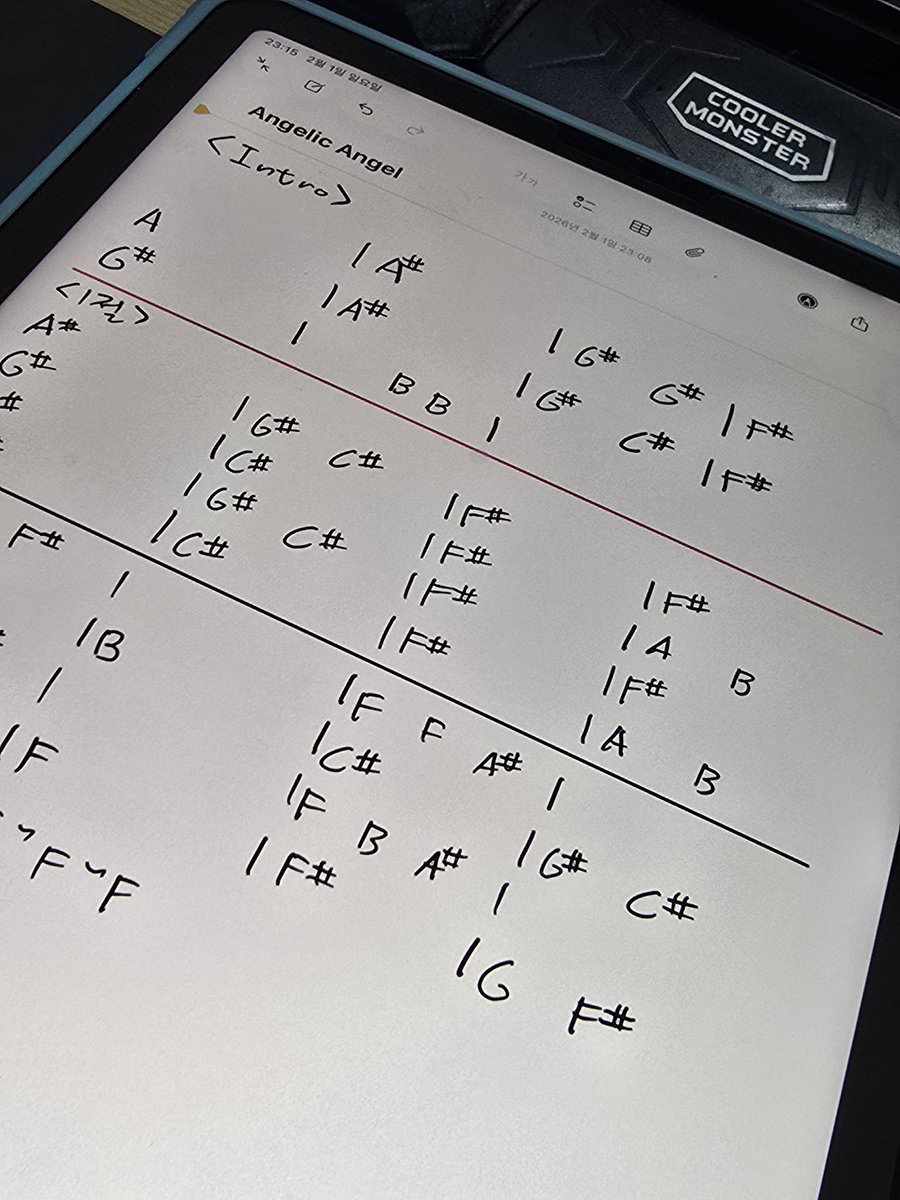 23:15 2월 1일 일요일
Angelic Angel
가가
2026년 2월 1일 23:08
<Intro>
| A# | G# G# | F#
A | A# | G# C# | F#
G# | B B |
<1절>
A# | G# C# | F# | F#
G# | C# | F# | A B
# | G# C# | F# | F#
| C# | F# | A B
F# | | F F A# |
| B | C# | G# C#
| | F B A# |
| F | F# | G F#
~ F ~ F
COOLER
MONSTER